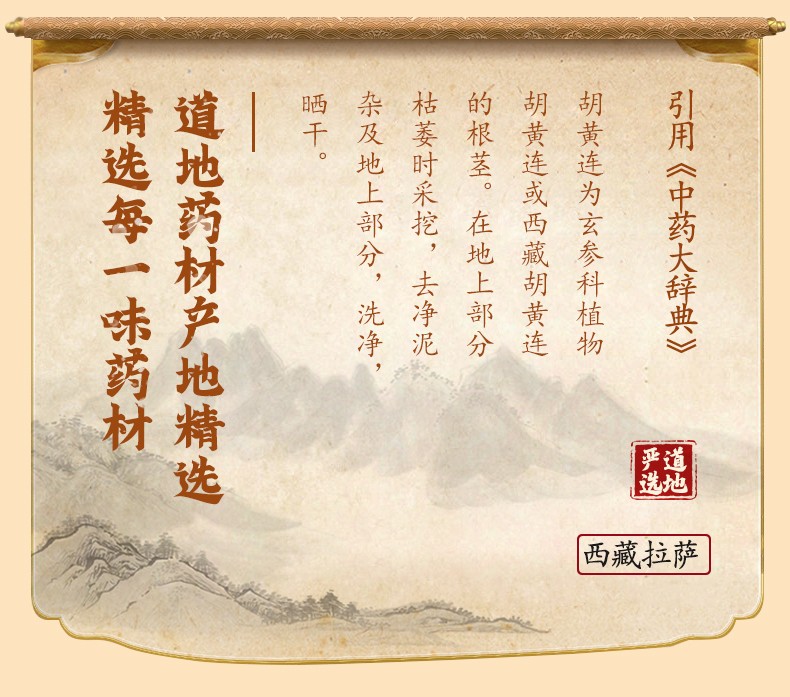 引用《中药大辞典》
胡黄连为玄参科植物
胡黄连或西藏胡黄连
的根茎。在地上部分
枯萎时采挖，去净泥
杂及地上部分，洗净，
晒干。
道地药材产地精选
精选每一味药材
道地
严选
西藏拉萨